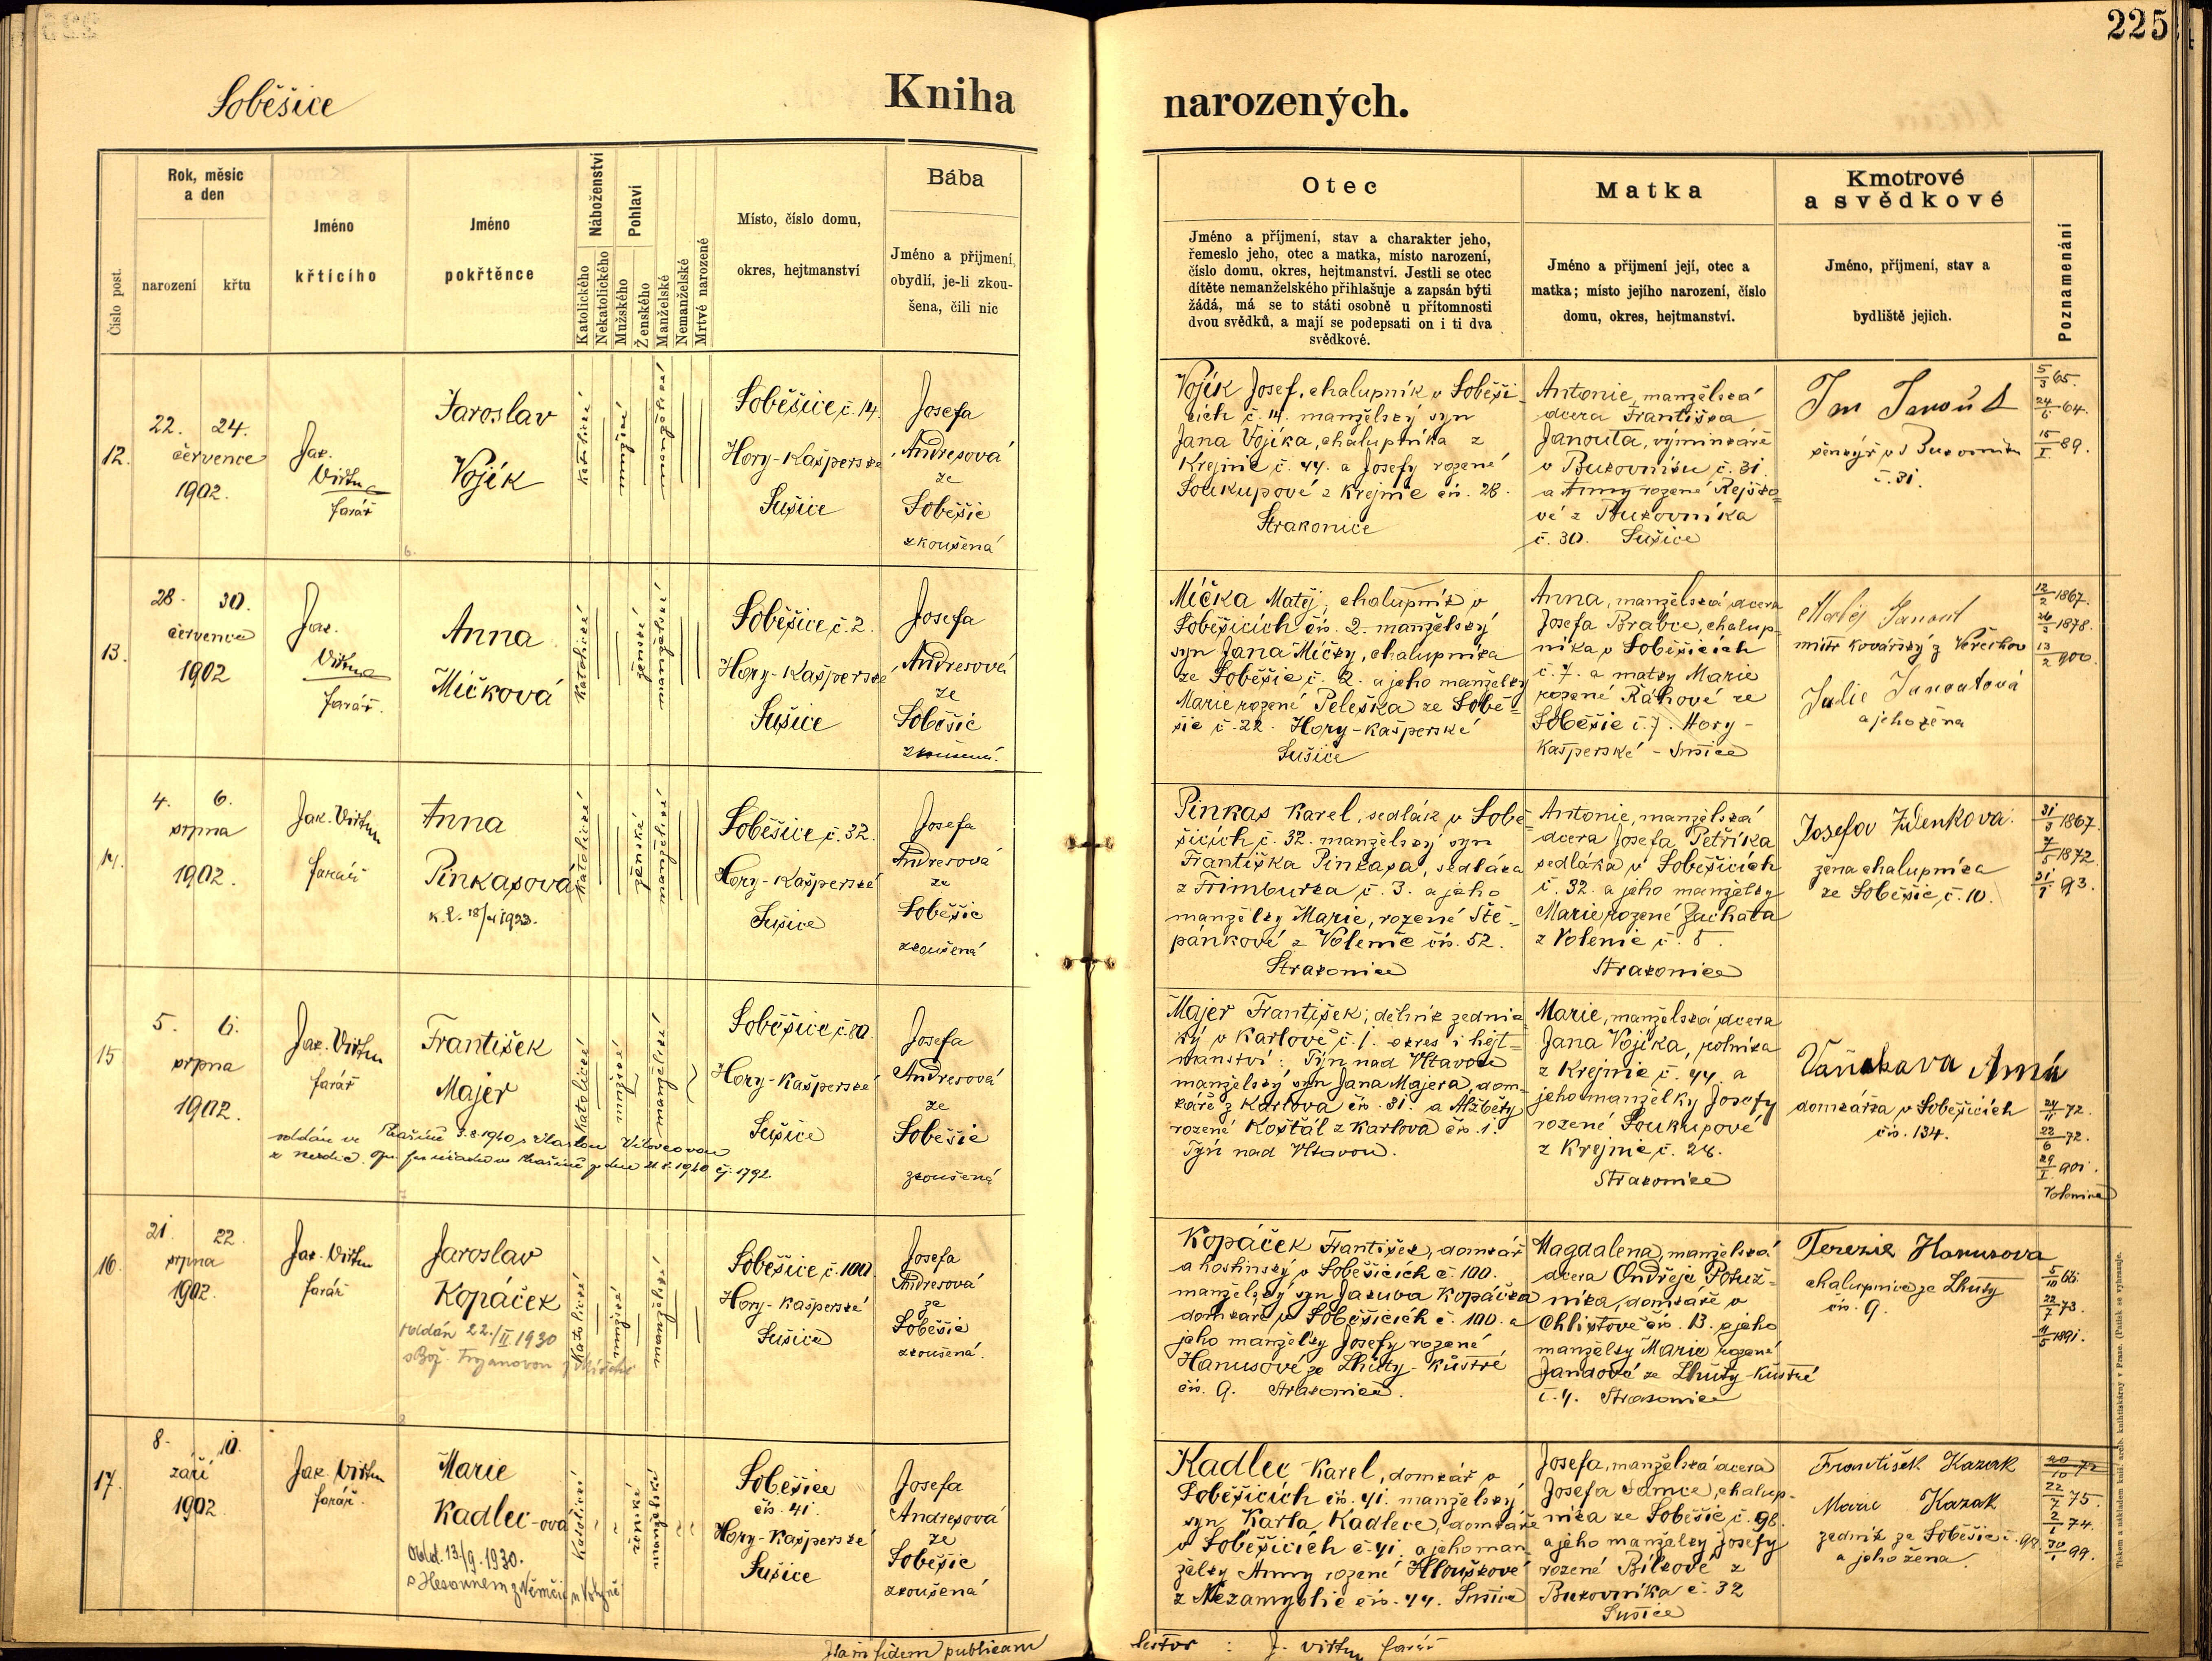 225
Soběšice
Kniha narozených.
Číslo post.
Rok, měsíc
a den
narození
křtu
Jméno
křtícího
Jméno
pokřtěnce
Náboženství
Katolického
Nekatolického
Pohlaví
Mužského
Ženského
Manželské
Nemanželské
Mrtvé narozené
Místo, číslo domu,
okres, hejtmanství
Bába
Jméno a příjmení,
obydlí, je-li zkou-
šena, čili nic
Otec
Jméno a příjmení, stav a charakter jeho,
řemeslo jeho, otec a matka, místo narození,
číslo domu, okres, hejtmanství. Jestli se otec
dítěte nemanželského přihlašuje a zapsán býti
žádá, má se to státi osobně u přítomnosti
dvou svědků, a mají se podepsati on i ti dva
svědkové.
Matka
Jméno a přijmení její, otec a
matka; místo jejího narození, číslo
domu, okres, hejtmanství.
Kmotrové
a svědkové
Jméno, příjmení, stav a
bydliště jejich.
Poznamenání
12.
22. 24.
července
1902.
Jak.
Virtu
farář
Jaroslav
Vojík
katolické
mužské
manželské
Soběšice č. 14.
Hory-Kašperské
Sušice
Josefa
Andresová
ze
Soběšic
zkoušená
Vojík Josef, chalupník v Soběši-
cích č. 14. manželský syn
Jana Vojíka, chalupníka z
Krejnic č. 44. a Josefy rozené
Soukupové z Krejnic čís. 28.
Strakonice
Antonie, manželská
dcera Františka
Janouta, výminkáře
v Bukovníku č. 31.
a Anny rozené Rejško-
vé z Bukovníka
č. 30. Sušice
Jan Janout
č. 31.
5/3 65.
24/6 64.
15/I. 89.
13.
28. 30.
července
1902
Jak.
Virtu
farář.
Anna
Míčková
katolické
ženské
manželské
Soběšice č. 2.
Hory-Kašperské
Sušice
Josefa
Andresová
ze
Soběšic
zkoušená.
Míčka Matěj, chalupník v
Soběšicích čís. 2. manželský
syn Jana Míčky, chalupníka
ze Soběšic č. 2. a jeho manželky
Marie rozené Peleška ze Sobě-
šic č. 22. Hory-Kašperské
Sušice
Anna, manželská dcera
Josefa Brabce, chalup-
níka v Soběšicích
č. 7. a matky Marie
rozené Ráhové ze
Soběšic č. 7. Hory-
Kašperské - Sušice
Matěj Janout
mistr kovářský z Veřechov
Julie Janoutová
a jeho žena
12/2 1867.
26/3 1878.
13/2 900.
14.
4. 6.
srpna
1902.
Jak. Virtu
farář
Anna
Pinkasová
katolické
ženské
manželské
Soběšice č. 32.
Hory-Kašperské
Sušice
Josefa
Andresová
ze
Soběšic
zkoušená
Pinkas Karel, sedlák v Sobě-
šicích č. 32. manželský syn
Františka Pinkasa, sedláka
z Frimburka č. 3. a jeho
manželky Marie, rozené Ště-
pánkové z Volenic čís. 52.
Strakonice
Antonie, manželská
dcera Josefa Petříka
sedláka v Soběšicích
č. 32. a jeho manželky
Marie, rozené Zachata
z Volenic č. 5.
Strakonice
Josefa Zdenkova
žena chalupníka
ze Soběšic, č. 10.
31/3 1867.
7/5 1872.
31/1 93.
15
5. 6.
srpna
1902.
Jak. Virtu
farář
František
Majer
katolické
mužské
manželské
Soběšice č. 80.
Hory-Kašperské
Sušice
Josefa
Andresová
ze
Soběšic
zkoušená
Majer František, dělník zednic-
ký v Karlově č. 1. okres i hejt-
manství: Týn nad Vltavou
manželský syn Jana Majera, dom-
káře z Karlova čís. 31. a Alžběty
rozené Koštál z Karlova čís. 1.
Týn nad Vltavou.
Marie, manželská dcera
Jana Vojíka, rolníka
z Krejnic č. 44. a
jeho manželky Josefy
rozené Soukupové
z Krejnic č. 28.
Strakonice
domkářka v Soběšicích
čís. 134.
24/11 72.
22/6 72.
29/I. 901.
Volenice
16.
21. 22.
srpna
1902.
Jak. Virtu
farář
Jaroslav
Kopáček
oddán 22./II 1930
katolické
mužské
manželské
Soběšice č. 100.
Hory-Kašperské
Sušice
Josefa
Andresová
ze
Soběšic
zkoušená.
Kopáček František, domkář
a hostinský v Soběšicích č. 100.
manželský syn Jakuba Kopáčka
domkáře v Soběšicích č. 100. a
jeho manželky Josefy rozené
Hanusové ze Lhůty-Kůstré
čís. 9. Strakonice.
Magdalena, manželská
dcera Ondřeje Potuž-
níka, domkáře v
Chlistově čís. 13. a jeho
manželky Marie rozené
Jandové ze Lhůty-Kůstré
č. 4. Strakonice
Terezie Hanusova
chalupnice ze Lhuty
čís. 9.
5/10 66.
22/7 73.
11/5 1891.
17.
8. 10.
září
1902.
Jak. Virtu
farář.
Marie
Kadlec-ová
Odd. 13/9. 1930.
katolické
ženské
manželské
Soběšice
čís. 41.
Hory-Kašperské
Sušice
Josefa
Andresová
ze
Soběšic
zkoušená
Kadlec Karel, domkář v
Soběšicích čís. 41. manželský
syn Karla Kadlece, domkáře
v Soběšicích č. 41. a jeho man-
želky Anny rozené Hlouškové
z Nezamyslic čís. 44. Sušice
Josefa, manželská dcera
Josefa Samce, chalup-
níka ze Soběšic č. 98.
a jeho manželky Josefy
rozené Bílkové z
Bukovníka č. 32
Sušice
František Kazak
Marie Kazak
zedník ze Soběšic č. 98.
a jeho žena.
20/10 72
22/7 75.
2/1 74.
30/1 99.
Ita in fidem publicam testor : J. Virtu farář